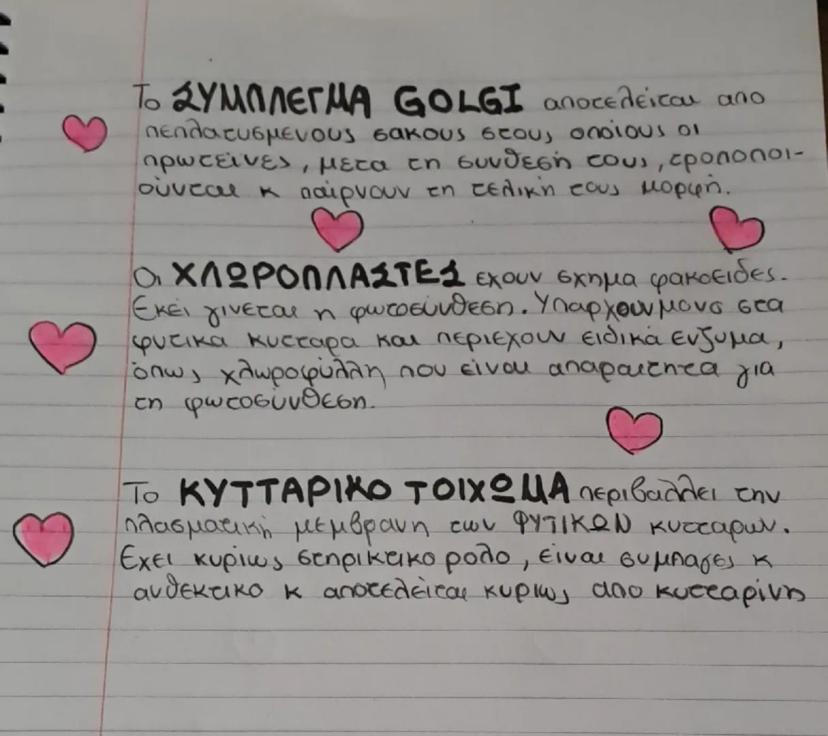 Το ΣΥΜΠΛΕΓΜΑ GOLGI αποτελείται απο
πεπλατυσμενους σακους στους οποίους οι
πρωτεϊνες, μετα τη συνθεσή τους, τροποποι-
ούνται κ παίρνουν τη τελική τους μορφή.
Οι ΧΛΩΡΟΠΛΑΣΤΕΣ εχουν σχημα φακοειδες.
Εκεί γινεται η φωτοσύνθεση. Υπαρχουν μονο στα
φυτικα κυτταρα και περιεχουν ειδικά ενζυμα,
όπως χλωροφύλλη που είναι απαραιτητα για
τη φωτοσύνθεση.
Το ΚΥΤΤΑΡΙΚΟ ΤΟΙΧΩΜΑ περιβαλλει την
πλασματική μεμβρανη των ΦΥΤΙΚΩΝ κυτταρων.
Εχει κυρίως στηρικτικο ρολο, είναι συμπαγες κ
ανθεκτικο κ αποτελείται κυριως απο κυτταρίνη